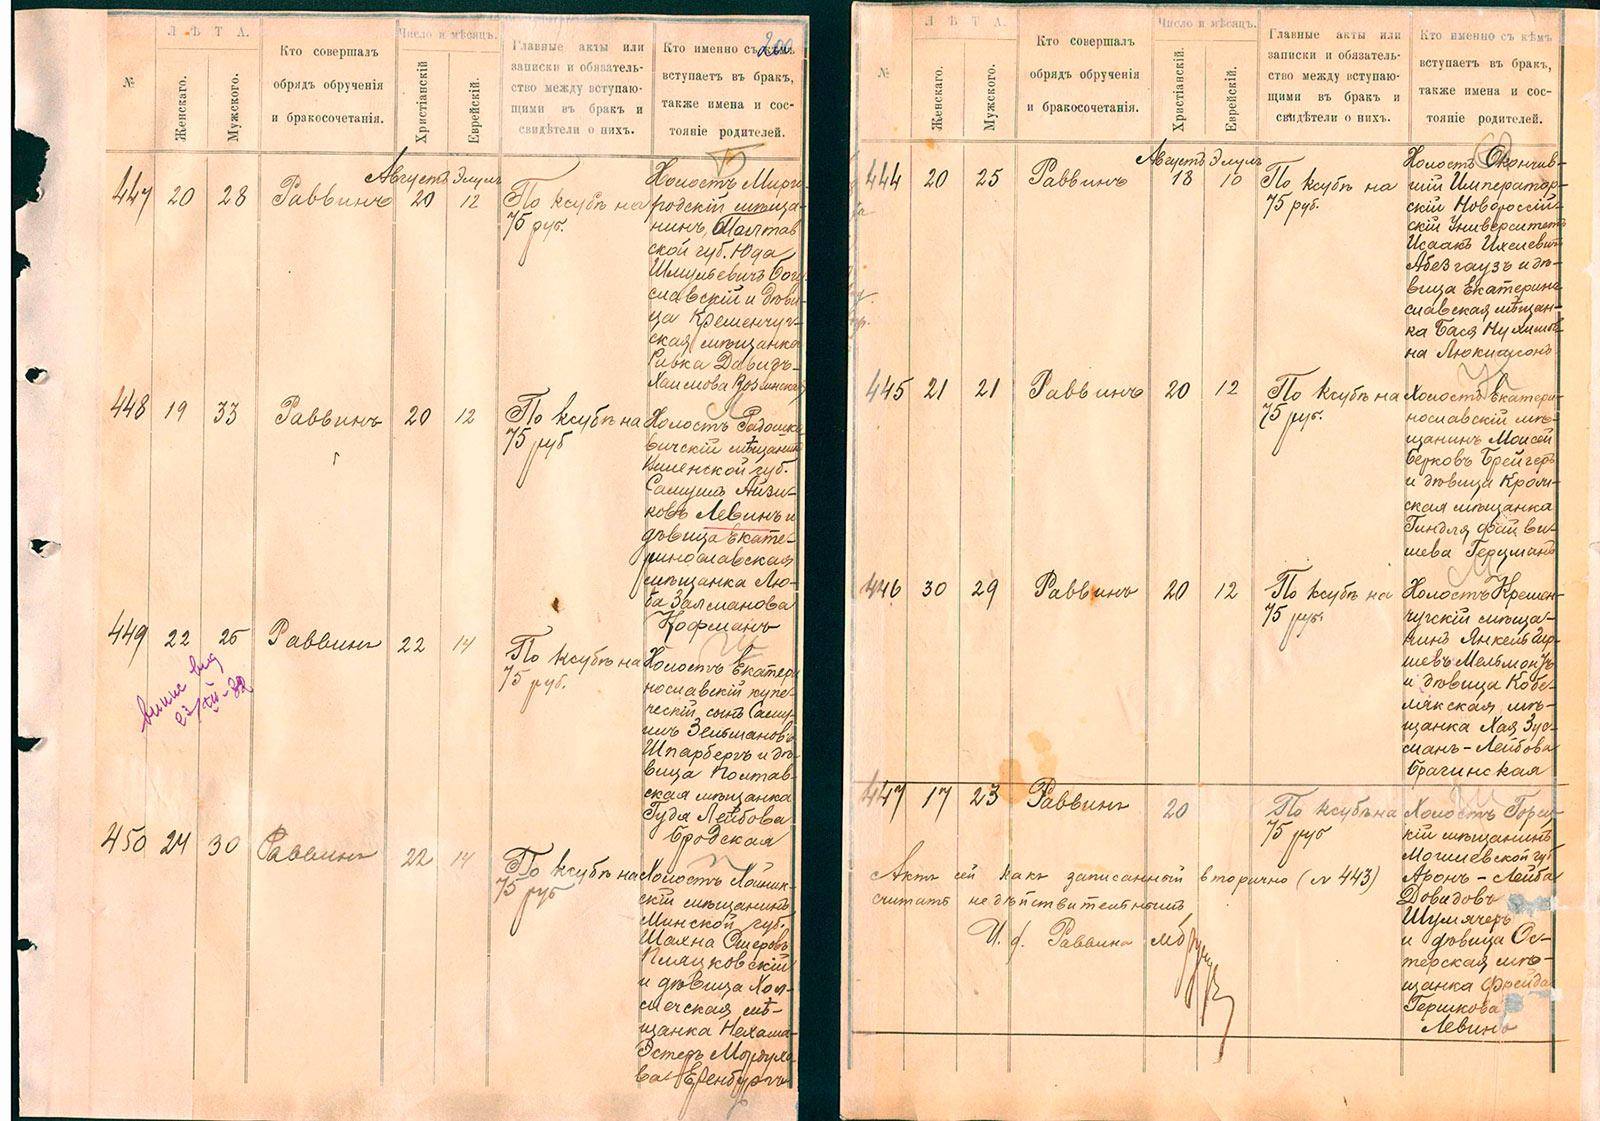 200
Л Ѣ Т А.
Число и мѣсяцъ.
№
Женскаго.
Мужского.
Кто совершалъ
обрядъ обрученія
и бракосочетанія.
Христіанскій
Еврейскій.
Главные акты или
записки и обязатель-
ство между вступаю-
щими въ бракъ и
свидѣтели о нихъ.
Кто именно съ кѣмъ
вступаетъ въ бракъ,
также имена и сос-
тояніе родителей.
Августъ Элулъ
447 20 28 Раввинъ 20 12 По ксубѣ на
75 руб.
Холостъ Мирго-
родскій мѣща-
нинъ, Полтав
ской губ. Юда
Шмульевичъ Богу
славскій и дѣви-
ца Кременчуг-
ская мѣщанка
Ривка Давидъ-
Хаимова
448 19 33 Раввинъ 20 12 По ксубѣ на
75 руб
Холостъ Радошко
вичскій мѣщанинъ
Виленской губ.
Самуилъ Айзи-
ковъ Левинъ и
дѣвица Екате-
ринославская
мѣщанка Лю-
ба Залманова
Кофманъ
449 22 25 Раввинъ 22 14 По ксубѣ на
75 руб.
Холостъ Екатери
нославскій купе-
ческій сынъ Саму-
илъ Зельмановъ
Шпарбергъ и дѣ-
вица Полтав-
ская мѣщанка
Гудя Лейбова
Бродская
450 24 30 Раввинъ 22 14 По ксубѣ на
75 руб
Холостъ Хойник-
скій мѣщанинъ
Минской губ.
Шахна Ошеровъ
Пляцковскій
и дѣвица Хол-
мечская мѣ-
щанка Нехама-
Эстеръ
ва Еренбургъ
Л Ѣ Т А.
Число и мѣсяцъ.
№
Женскаго.
Мужского.
Кто совершалъ
обрядъ обрученія
и бракосочетанія.
Христіанскій.
Еврейскій.
Главные акты или
записки и обязатель-
ство между вступаю-
щими въ бракъ и
свидѣтели о нихъ.
Кто именно съ кѣмъ
вступаетъ въ бракъ,
также имена и сос-
тояніе родителей.
Августъ Элулъ
444 20 25 Раввинъ 18 10 По ксубѣ на
75 руб.
Холостъ Окончив-
шій Император-
скій Новороссій-
скій Университетъ
Исаакъ Ихелевичъ
Абезгаузъ и дѣ-
вица Екатерино-
славская мѣщан-
ка Бася Нухимов-
на Люкимсонъ
445 21 21 Раввинъ 20 12 По ксубѣ на
75 руб.
Холостъ Екатери-
нославскій мѣ-
щанинъ Моисей
Берковъ Брейгеръ
и дѣвица Кролев-
ская мѣщанка
Гиндля Файви-
шева Герцманъ
446 30 29 Раввинъ 20 12 По ксубѣ на
75 руб.
Холостъ Кремен-
чугскій мѣща-
нинъ Янкель Гер-
шевъ Мельманъ
и дѣвица Кобе-
лякская мѣ-
щанка Хая Зус-
манъ-Лейбова
Брагинская
447 17 23 Раввинъ 20 По ксубѣ на
75 руб
Холостъ Горец-
кій мѣщанинъ
Могилевской губ
Аронъ-Лейба
Довидовъ
Шумячеръ
и дѣвица Ос-
терская мѣ-
щанка Фрейда
Гершкова
Левинъ
Актъ сей какъ записанный вторично (№ 443)
считать недѣйствительнымъ
И. ф. Раввина